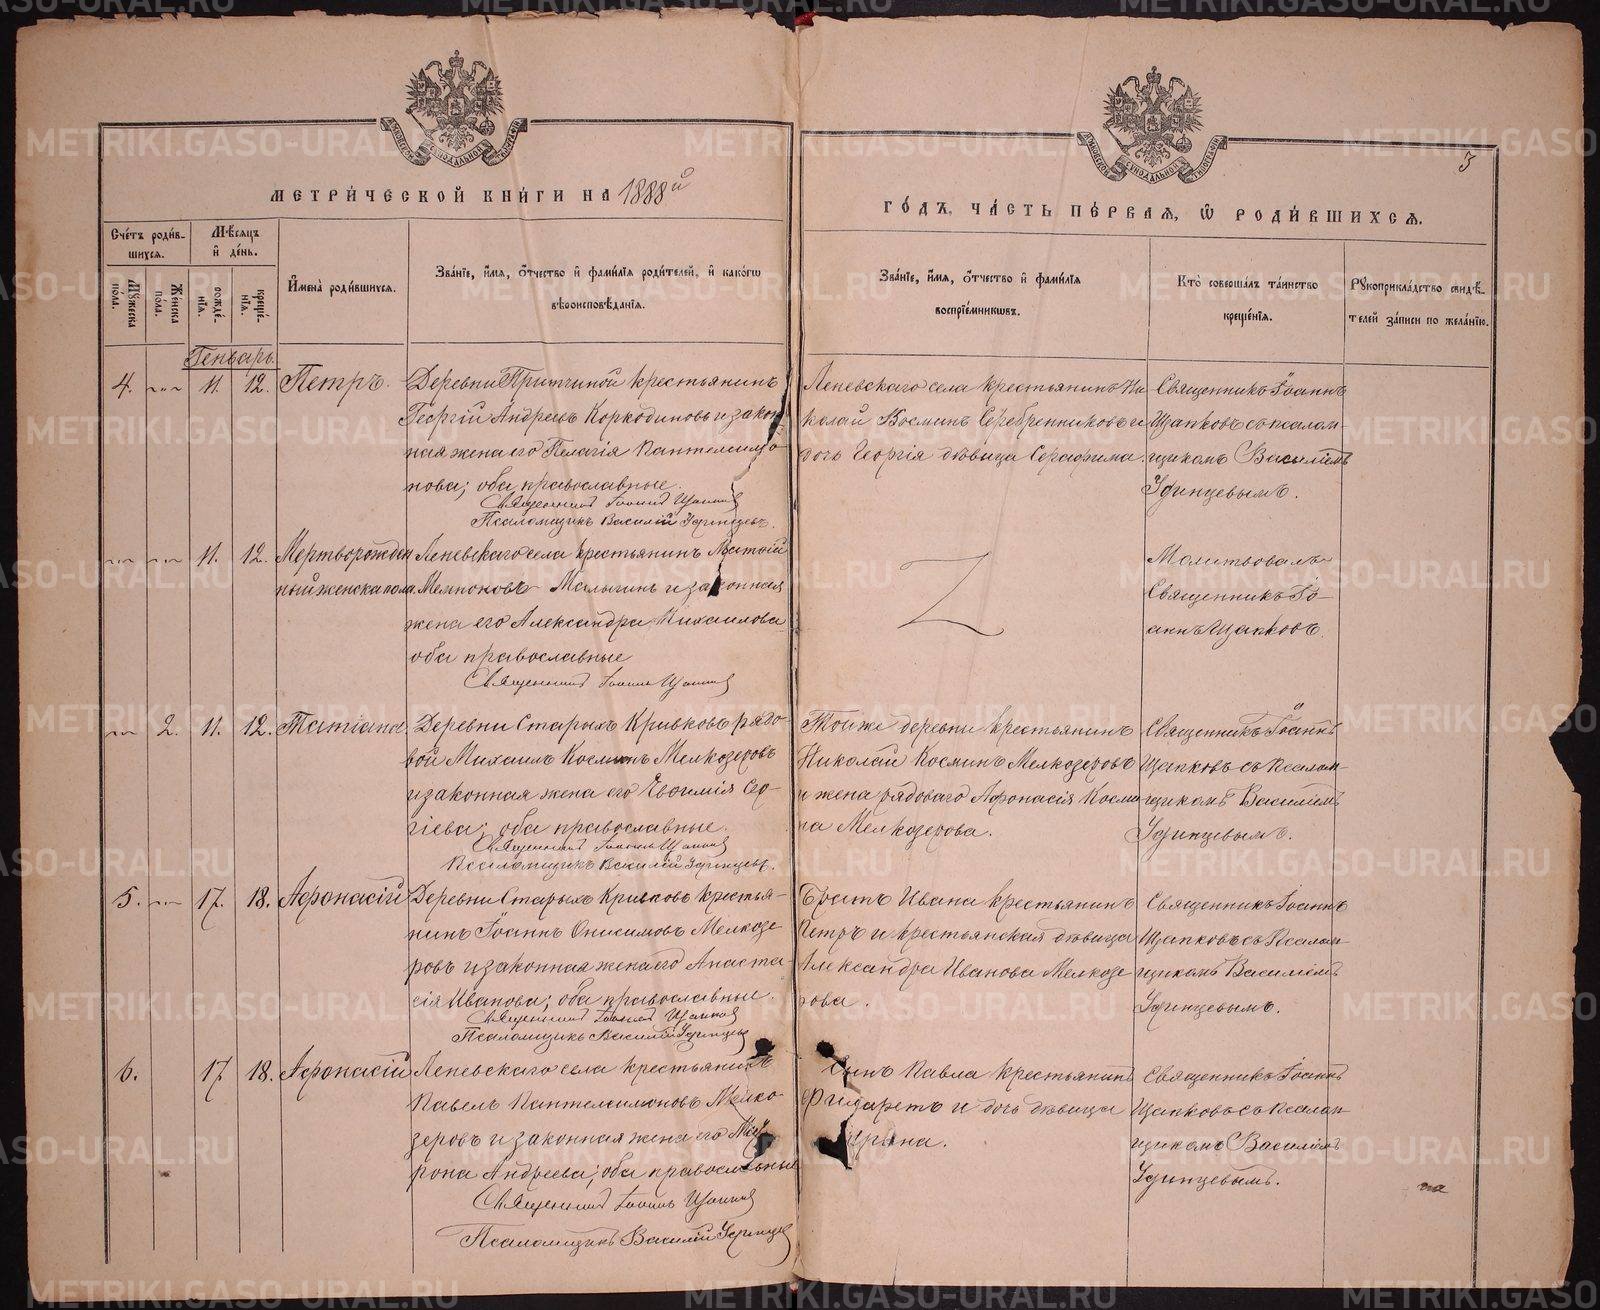 МЕТРИ́ЧЕСКОЙ КНИ́ГИ НА 1888й
ГО́ДЪ, ЧА́СТЬ ПЕ́РВАЯ, Ѡ҆ РОДИ́ВШИХСЯ.
3
Сче́тъ роди́в-
шихся.
Мѣ́сяцъ
и҆ де́нь.
Мꙋ́жеска по́ла.
Же́нска по́ла.
рожде́-
нїя.
креще́-
нїя.
И҆мена̀ роди́вшихся.
Зва́нїе, и҆́мя, ѻ҆́тчество и҆ фами́лїя роди́телей, и҆ како́гѡ
вѣроисповѣ́данїя.
Зва́нїе, и҆́мя, ѻ҆́тчество и҆ фами́лїя
воспрїе́мникѡвъ.
Кто̀ соверша́лъ та́инство
креще́нїя.
Рꙋкоприкла́дство свидѣ́-
телей за́писи по жела́нїю.
Генварь.
4. 11. 12. Петръ.
Деревни Притчиной крестьянинъ
Георгій Андреевъ Коркодиновъ и закон
ная жена его Пелагія Пантелеимо
нова; оба православные.
Священникъ Іоаннъ Щапковъ
Псаломщикъ Василій Удинцевъ.
Леневскаго села крестьянинъ Ни
колай Космин Серебренниковъ и
дочь Георгія дѣвица Серафима.
Священникъ Іоаннъ
Щапковъ съ псалом-
щикомъ Василіемъ
Удинцевымъ.
11. 12. Мертворожден
ный женска пола
Леневскаго села крестьянинъ
Малыгинъ и законная
жена его Александра Михаилова
оба православные
Священникъ Іоаннъ Щапковъ
Молитвовалъ
Священникъ Іо-
аннъ Щапковъ.
2. 11. 12. Татіана
Деревни Старыхъ Кривковъ рядо-
вой Михаилъ Косминъ Мелкозеровъ
и законная жена его Евѳимія Сер-
гіева; оба православные.
Священникъ Іоаннъ Щапковъ
Псаломщикъ Василій Удинцевъ.
Той же деревни крестьянинъ
Николай Косминъ Мелкозеровъ
и жена рядоваго Афонасія Косми
на Мелкозерова.
Священникъ Іоаннъ
Щапковъ съ псалом-
щикомъ Василіемъ
Удинцевымъ.
5. 17. 18. Афонасій
Деревни Старыхъ Кривковъ крестья-
нинъ Іоаннъ Онисимовъ Мелкозе
ровъ и законная жена его Анаста-
сія Иванова; оба православные.
Священникъ Іоаннъ Щапковъ
Псаломщикъ Василій Удинцевъ
Братъ Ивана крестьянинъ
Петръ и крестьянская дѣвица
Александра Иванова Мелкозе
рова.
Священникъ Іоаннъ
Щапковъ съ псалом-
щикомъ Василіемъ
Удинцевымъ.
6. 17 18. Афонасій
Леневскаго села крестьянинъ
Павелъ Пантелеимоновъ Мелко-
зеровъ и законная жена его Мат
рона Андреева; оба православные
Священникъ Іоаннъ Щапковъ
Псаломщикъ Василій Удинцевъ
Сынъ Павла крестьянинъ
Филаретъ и дочь дѣвица
Ирина.
Священникъ Іоаннъ
Щапковъ съ псалом-
щикомъ Василіемъ
Удинцевымъ.
на
METRIKI.GASO-URAL.RU